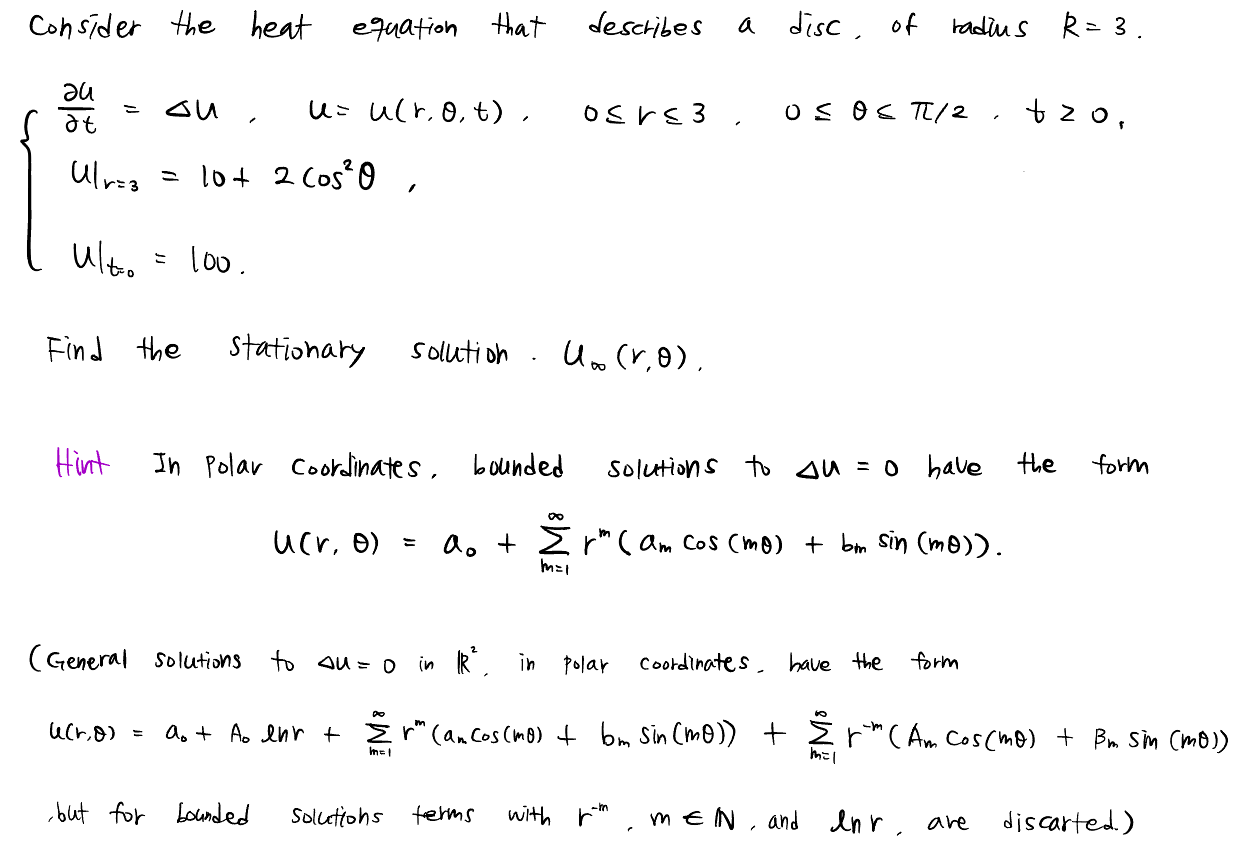 Consider the heat equation that describes a disc, of radius R = 3.
∂u/∂t = Δu, u = u(r, θ, t), 0 ≤ r ≤ 3, 0 ≤ θ ≤ π/2, t ≥ 0,
u|r=3 = 10 + 2 cos²θ,
u|t=0 = 100.
Find the stationary solution. u∞(r,θ).
Hint In polar coordinates, bounded solutions to Δu = 0 have the form
u(r, θ) = a₀ + ∞ Σ m=1 rᵐ (aₘ cos (mθ) + bₘ sin (mθ)).
(General solutions to Δu = 0 in ℝ², in polar coordinates, have the form
u(r,θ) = a₀ + A₀ lnr + ∞ Σ m=1 rᵐ (aₘ cos(mθ) + bₘ sin(mθ)) + ∞ Σ m=1 r⁻ᵐ (Aₘ cos(mθ) + Bₘ sin (mθ))
, but for bounded solutions terms with r⁻ᵐ, m ∈ ℕ, and ln r, are discarted.)